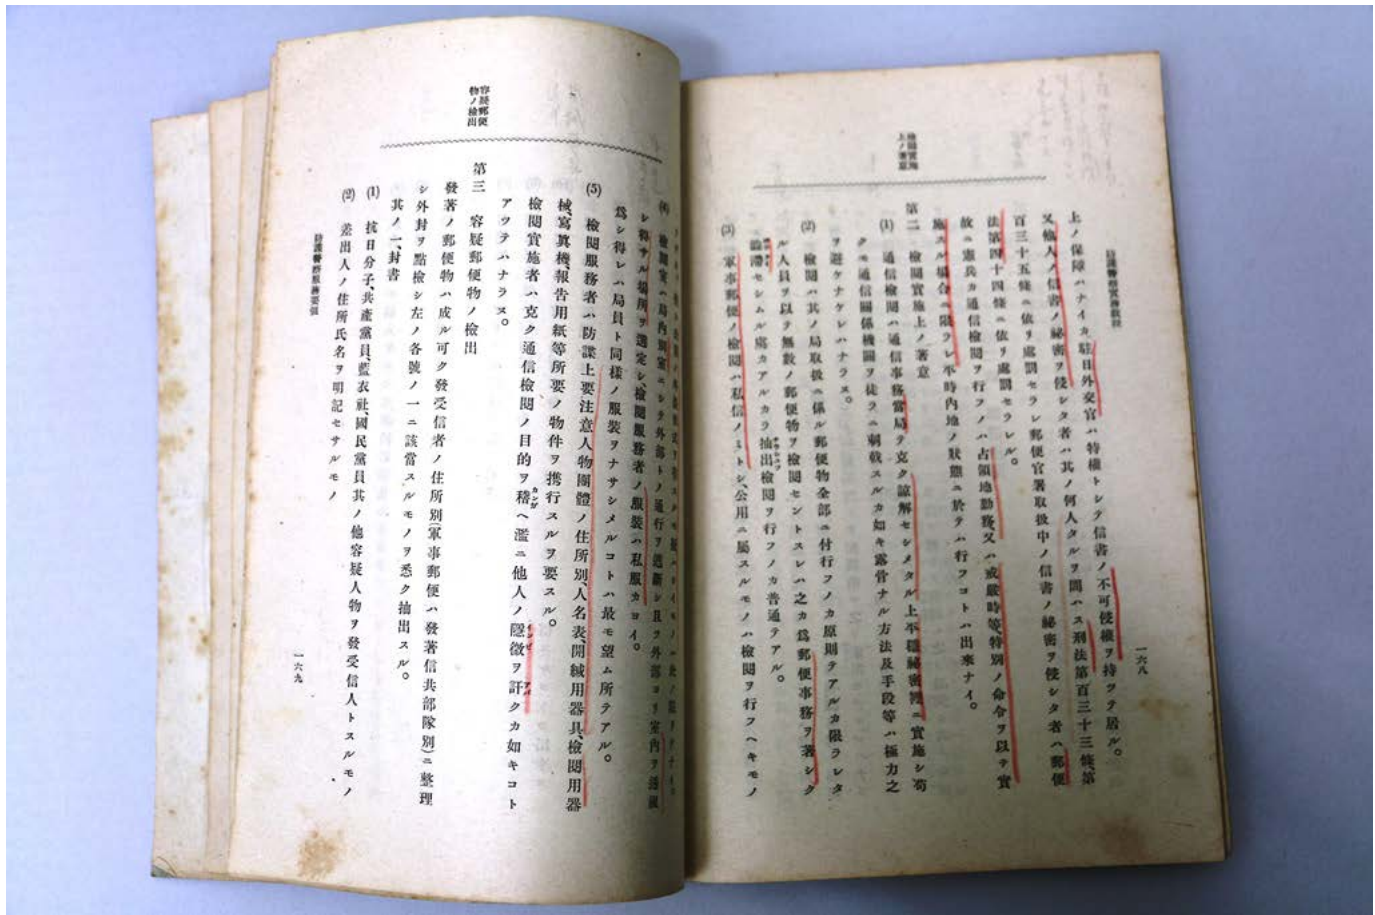 一六八
檢閱實施
上ノ著意
上ノ保障ハナイカ駐日外交官ハ特權トシテ信書ノ不可侵權ヲ持ツテ居ル。
又他人ノ信書ノ祕密ヲ侵シタ者ハ其ノ何人タルヲ問ハス刑法第百三十三條、第
百三十五條ニ依リ處罰セラレ郵便官署取扱中ノ信書ノ祕密ヲ侵シタ者ハ郵便
法第四十四條ニ依リ處罰セラレル。
故ニ憲兵カ通信檢閱ヲ行フノハ占領地勤務、又ハ戒嚴時等特別ノ命令ヲ以テ實
施スル場合ニ限ラレ平時內地ノ狀態ニ於テハ行フコトハ出來ナイ。
第二 檢閱實施上ノ著意
(1) 通信檢閱ハ通信事務當局ヲ克ク諒解セシメタル上平穩祕密裡ニ實施シ苟
クモ通信關係機關ヲ徒ラニ刺戟スルカ如キ露骨ナル方法及手段等ハ極力之
ヲ避ケナケレハナラス。
(2) 檢閱ハ其ノ局取扱ニ係ル郵便物全部ニ付行フノカ原則テアルカ限ラレタ
ル人員ヲ以テ無數ノ郵便物ヲ檢閱セントスレハ之カ爲郵便事務ヲ著シク
澁滯セシムル虞カアルカラ抽出檢閱ヲ行フノカ普通テアル。
(3) 軍事郵便ノ檢閱ハ私信ノミトシ、公用ニ屬スルモノハ檢閱ヲ行フヘキモノ
容疑郵便
物ノ檢出
(4) 檢閱室ハ局內別室ニシテ外部トノ通行ヲ遮斷シ且ツ外部ヨリ室內ヲ透視
シ得サル場所ヲ選定シ、檢閱服務者ノ服裝ハ私服カヨイ。
爲シ得レハ局員ト同樣ノ服裝ヲナサシメルコトハ最モ望ム所テアル。
(5) 檢閱服務者ハ防諜上要注意人物團體ノ住所別、人名表、開緘用器具、檢閱用器
械、寫眞機、報告用紙等所要ノ物件ヲ携行スルヲ要スル。
檢閱實施者ハ克ク通信檢閱ノ目的ヲ稽ヘ濫ニ他人ノ隱微ヲ訐クカ如キコト
アツテハナラス。
第三 容疑郵便物ノ檢出
發著ノ郵便物ハ成ル可ク發受信者ノ住所別(軍事郵便ハ發著信共部隊別)ニ整理
シ外封ヲ點檢シ左ノ各號ノ一ニ該當スルモノヲ悉ク抽出スル。
其ノ一、封書
(1) 抗日分子、共產黨員、藍衣社、國民黨員其ノ他容疑人物ヲ發受信人トスルモノ
(2) 差出人ノ住所氏名ヲ明記セサルモノ
一六九